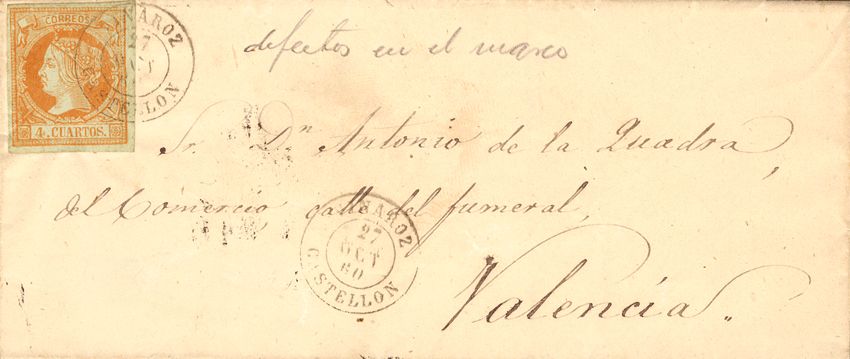 CORREOS
4. CUARTOS.
NAROZ
27
CASTELLON
defectos en el marco
Sr. Dn Antonio de la Quadra,
del Comercio, calle del fumeral,
NAROZ
27
OCT
60
CASTELLON
Valencia.